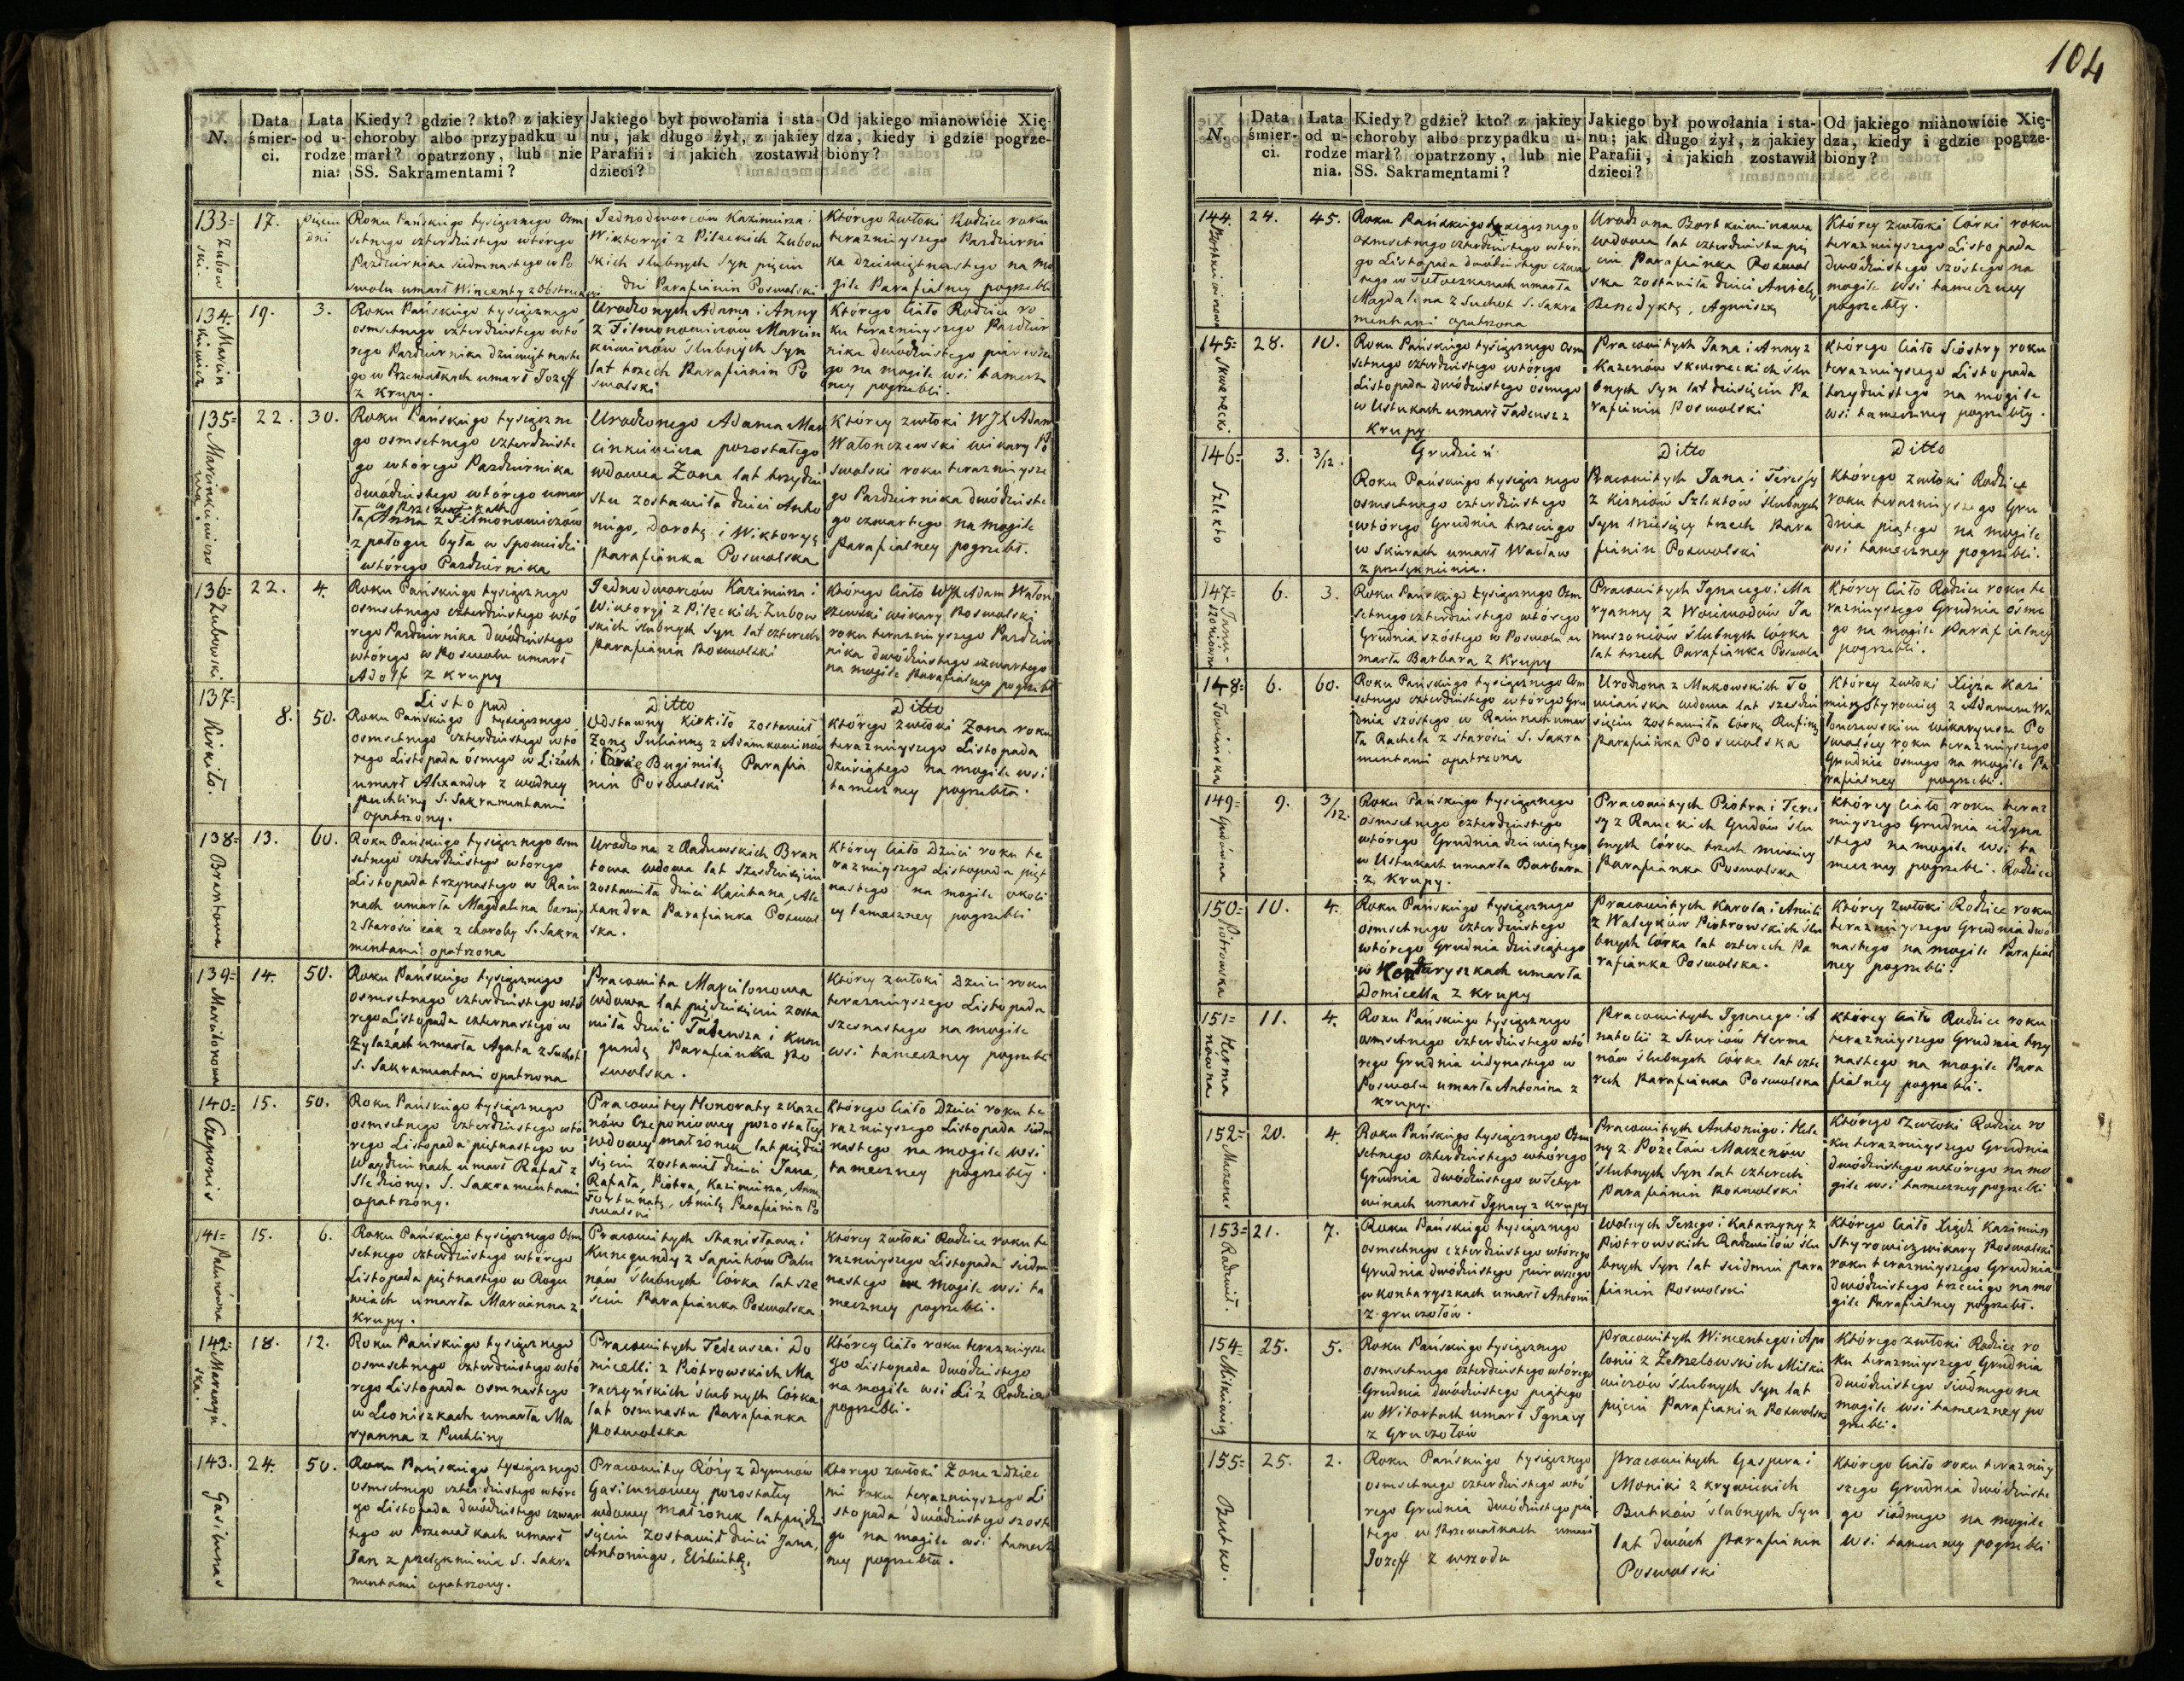 104
N.
Data śmierci.
Lata od urodzenia:
Kiedy? gdzie? kto? z jakiey
choroby albo przypadku u
marł? opatrzony, lub nie
SS. Sakramentami?
Jakiego był powołania i sta-
nu, jak długo żył, z jakiey
Parafii: i jakich zostawił
dzieci?
Od jakiego mianowicie Xię
dza, kiedy i gdzie pogrze-
biony?
133 Zubowski.
17.
pięciu dni
Roku Pańskiego tysiącznego Osm
setnego czterdziestego wtórego
Pazdziernika siedmnastego w Po
swolu umarł Wincenty z Obstrukcyi
Jednodworców Kazimierza i
Wiktoryi z Pileckich Zubow
skich slubnych Syn pięciu
dni Parafianin Poswolski
Którego zwłoki Rodzice roku
terazniyszego Pazdzierni
ka dziewiętnastego na mo
gile Parafialney pogrzebli
134 Marcinkiewicz
19.
3.
Roku Pańskiego tysiącznego
osmsetnego czterdziestego wtó
rego Pazdziernika dziewiętnaste
go w Przewałkach umarł Jozeff
z krupy.
Urodzonych Adama i Anny
z Filmonowiczów Marcin
kiewiczów Slubnych Syn
lat trzech Parafianin Po
swolski
Którego Ciało Rodzice ro
ku terazniyszego Pazdzier
nika dwódziestego pierwsze
go na mogile wsi tamecz
ney pogrzebli.
135 Marcinkiewiczowa
22.
30.
Roku Pańskiego tysiączne
go osmsetnego czterdzieste
go wtórego Pazdziernika
dwódziestego wtórego umar
w Przewałkach
ła Anna z Filmonowiczów
z połogu była w Spowiedzi
wtórego Pazdziernika
Urodzonego Adama Mar
cinkiewicza pozostałego
wdowca Zona lat trzydzie
stu zostawiła dzieci Anto
niego, Dorotę i Wiktoryę
parafianka Poswolska
Którey zwłoki WJX Adam
Wałonczewski wikary Po
swolski roku terazniysze
go Pazdziernika dwódzieste
go czwartego na mogile
parafialney pogrzebł.
136 Zubowski
22.
4.
Roku Pańskiego tysiącznego
osmsetnego czterdziestego wtó
rego Pazdziernika dwódziestego
wtórego w Poswolu umarł
Adolf z krupy
Jednodworców Kazimierza i
Wiktoryi z Pileckich Zubow
skich slubnych Syn lat czterech
parafianin Poswolski
Którego Ciało WJX Adam Wałon
czewski wikary Poswolski
roku terazniyszego Pazdzier
nika dwódziestego czwartego
na mogile parafialney pogrzebł
137 Kirkiło.
8.
50.
Listopad
Roku Pańskiego tysiącznego
osmsetnego czterdziestego wtó
rego Listopada ósmego w Lizach
umarł Alexander z wodney
puchliny S. Sakramentami
opatrzony.
Ditto
Odstawny Kirkiło zostawił
Zonę Juliannę z Adamkowiczów
i Córkę Bugimiłę Parafia
nin Poswolski
Ditto
Którego zwłoki Zona roku
terazniyszego Listopada
dziesiątego na mogile wsi
tameczney pogrzebła.
138 Brantowa
13.
60.
Roku Pańskiego tysiącznego Osm
setnego czterdziestego wtorego
Listopada trzynastego w Rai
nach umarła Magdalena
z Starości iak z choroby S. Sakra
mentami opatrzona
Urodzona z Radwewskich Bran
towa wdowa lat szesdziesięciu
zostawiła dzieci Kaietana, Ale
xandra Parafianka Poswol
ska.
Którey Ciało Dzieci roku te
razniyszego Listopada pięt
nastego na mogile okoli
cy tameczney pogrzebli
139 Marcilonowa
14.
50.
Roku Pańskiego tysiącznego
osmsetnego czterdziestego wtó
rego Listopada czternastego w
Zylażach umarła Agata z Suchot
S. Sakramentami opatrzona
Pracowita Marcilonowa
wdowa lat pięćdziesięciu zosta
wiła dzieci Tadeusza i Kune
gundę Parafianka Po
swolska.
Którey zwłoki Dzieci roku
terazniyszego Listopada
szesnastego na mogile
wsi tameczney pogrzebli
140 Czeponis
15.
50.
Roku Pańskiego tysiącznego
osmsetnego czterdziestego wtó
rego Listopada piętnastego w
umarł Rafał z
Sledziony. S. Sakramentami
opatrzony.
Pracowitey Honoraty z Kaze
nów Czeponiowey pozostałey
wdowy małżonek lat pięćdzie
sięciu zostawił dzieci Jana,
Rafała, Piotra, Kazimierza, Annę
Fortunatę, Amilę Parafianin Po
swolski
Którego Ciało Dzieci roku te
razniyszego Listopada siedm
nastego na mogile wsi
tameczney pogrzebły.
141 Palunówna
15.
6.
Roku Pańskiego tysiącznego Osm
setnego czterdziestego wtórego
Listopada piętnastego w Rogu
wiach umarła Marcianna z
krupy.
Pracowitych Stanisława i
Kunegundy z Sapintów Palu
nów ślubnych Córka lat sze
ściu Parafianka Poswolska
Którey zwłoki Rodzice roku te
razniyszego Listopada siedm
nastego na mogile wsi ta
meczney pogrzebli.
142 Maraczyńska.
18.
12.
Roku Pańskiego tysiącznego
osmsetnego czterdziestego wtó
rego Listopada osmnastego
w Leoniszkach umarła Ma
ryanna z Puchliny
Pracowitych Tedeusza i Do
micelli z Piotrowskich Ma
raczyńskich ślubnych Córka
lat ósmnastu Parafianka
Poswolska
Którey Ciało roku terazniysze
go Listopada dwódziestego
na mogile wsi Liż Rodzice
pogrzebli.
143. Gasiunas
24.
50.
Roku Pańskiego tysiącznego
osmsetnego czterdziestego wtóre
go Listopada dwódziestego czwar
tego w Przewałkach umarł
Jan z przelęknienia S. Sakra
mentami opatrzony.
Pracowitey Róży z Dymnów
Gasiunowey pozostałey
wdowy małżonek lat pięćdzie
sięciu zostawił dzieci Jana,
Antoniego, Elżbietę.
Ktorego zwłoki Zona z dzieć
mi roku terazniyszego Li
stopada dwódziestego szoste
go na mogile wsi tamecz
ney pogrzebła.
N.
Data śmierci.
Lata od urodzenia.
Kiedy? gdzie? kto? z jakiey
choroby albo przypadku u-
marł? opatrzony, lub nie
SS. Sakramentami?
Jakiego był powołania i sta-
nu; jak długo żył, z jakiey
Parafii, i jakich zostawił
dzieci?
Od jakiego mianowicie Xię-
dza, kiedy i gdzie pogrze-
biony?
144 Bortkiewiczowa
24.
45.
Roku Pańskiego tysiącznego
osmsetnego czterdziestego wtóre
go Listopada dwódziestego czwar
tego w umarła
Magdalena z Suchot S. Sakra
mentami opatrzona
Urodzona Bortkiewiczowa
wdowa lat czterdziestu pię
ciu Parafianka Poswol
ska zostawiła dzieci Anielę
Benedyktę, Agnieszkę
Którey zwłoki Córki roku
terazniyszego Listopada
dwódziestego szóstego na
mogile wsi tameczney
pogrzebły.
145 Skworecki.
28.
10.
Roku Pańskiego tysiącznego Osm
setnego czterdziestego wtórego
Listopada dwódziestego osmego
w Ustukach umarł Tadeusz z
Krupy.
Pracowitych Jana i Anny z
Kazenów Skworeckich slu
bnych Syn lat dziesięciu Pa
rafianin Poswolski
Którego Ciało Sióstry roku
terazniyszego Listopada
trzydziestego na mogile
wsi tameczney pogrzebły.
146 Szlekto
3.
3/12.
Grudzień
Roku Pańskiego tysiącznego
osmsetnego czterdziestego
wtórego Grudnia trzeciego
w Skurach umarł Wacław
z przelęknienia.
Ditto
Pracowitych Jana i Teressy
z Kisniów Szlektów Slubnych
Syn miesięcy trzech Para
fianin Poswolski
Ditto
Którego zwłoki Rodzice
roku terazniyszego Gru
dnia piątego na mogile
wsi tameczney pogrzebli.
147 Januszoniówna
6.
3.
Roku Pańskiego tysiącznego Osm
setnego czterdziestego wtórego
Grudnia szóstego w Poswolu u
marła Barbara z Krupy
Pracowitych Ignacego i Ma
ryanny z Woiewodów Ja
nuszoniów Slubnych Córka
lat trzech Parafianka Poswola
Którey Ciało Rodzice roku te
razniyszego Grudnia ósme
go na mogile Parafialney
pogrzebli.
148 Towiańska
6.
60.
Roku Pańskiego tysiącznego Osm
setnego czterdziestego wtórego Gru
dnia szóstego w Rainach umar
ła Rachela z starości S. Sakra
mentami opatrzona
Urodzona z Makowskich To
wiańska wdowa lat szesdzie
sięciu zostawiła Córkę Rufinę
parafianka Poswolska
Którey zwłoki Xięża Kazi
mierz Styrowicz z Adamem Wa
łonczewskim wikaryusze Po
swolscy roku terazniyszego
Grudnia ósmego na mogile Pa
rafialney pogrzebli.
149 Gudówna
9.
3/12.
Roku Pańskiego tysiącznego
osmsetnego czterdziestego
wtórego Grudnia dziewiątego
w Ustukach umarła Barbara
z krupy.
Pracowitych Piotra i Teres
sy z Raneckich Gudów ślu
bnych Córka trzech miesięcy
parafianka Poswolska
Którey Ciało roku teraz
niyszego Grudnia iedyna
stego na mogile wsi ta
meczney pogrzebli. Rodzice
150 Piotrowska
10.
4.
Roku Pańskiego tysiącznego
osmsetnego czterdziestego
wtórego Grudnia dziesiątego
w Kontaryszkach umarła
Domicella z krupy
Pracowitych Karola i Amili
z Walcyków Piotrowskich ślu
bnych Córka lat czterech Pa
rafianka Poswolska.
Którey zwłoki Rodzice roku
terazniyszego Grudnia dwó
nastego na mogile Parafial
ney pogrzebli.
151 Hermanówna
11.
4.
Roku Pańskiego tysiącznego
osmsetnego czterdziestego wtó
rego Grudnia iedynastego w
Poswolu umarła Antonina z
krupy.
Pracowitych Ignacego i A
natolii z Sturiów Herma
nów ślubnych Córka lat czte
rech Parafianka Poswolska
Którey Ciało Rodzice roku
terazniyszego Grudnia trzy
nastego na mogile Para
fialney pogrzebli.
152 Maczenas
20.
4.
Roku Pańskiego tysiącznego Osm
setnego czterdziestego wtórego
Grudnia dwódziestego w Tetyr
winach umarł Ignacy z krupy
Pracowitych Antoniego i Hele
ny z Pożełów Maczenów
slubnych Syn lat czterech
Parafianin Poswolski
Którego zwłoki Rodzice ro
ku terazniyszego Grudnia
dwódziestego wtórego na mo
gile wsi tameczney pogrzebli
153 Radziwił.
21.
7.
Roku Pańskiego tysiącznego
osmsetnego czterdziestego wtórego
Grudnia dwódziestego pierwszego
w Kontaryszkach umarł Antoni
z gruczołów.
Wolnych Jerzego i Katarzyny z
Piotrowskich Radziwiłów ślu
bnych Syn lat siedmiu para
fianin Poswolski
Którego Ciało Xiądz Kazimierz
Styrowicz wikary Poswolski
roku terazniyszego Grudnia
dwódziestego trzeciego na mo
gile Parafialney pogrzebł.
154 Milkiewicz
25.
5.
Roku Pańskiego tysiącznego
osmsetnego czterdziestego wtórego
Grudnia dwódziestego piątego
w Witartach umarł Ignacy
z Gruczołów
Pracowitych Wincentego i Apo
lonii z Zemelowskich Milkie
wiczów Slubnych Syn lat
pięciu Parafianin Poswolski
Którego zwłoki Rodzice ro
ku terazniyszego Grudnia
dwódziestego siódmego na
mogile wsi tameczney po
grzebli.
155 Butko.
25.
2.
Roku Pańskiego tysiącznego
osmsetnego czterdziestego wtó
rego Grudnia dwódziestego pią
tego w Przewałkach umarł
Jozeff z wrzodu
Pracowitych Gaspera i
Moniki z Krywickich
Butków ślubnych Syn
lat dwóch Parafianin
Poswolski
Którego Ciało roku terazniy
szego Grudnia dwódzieste
go siódmego na mogile
wsi tameczney pogrzebli